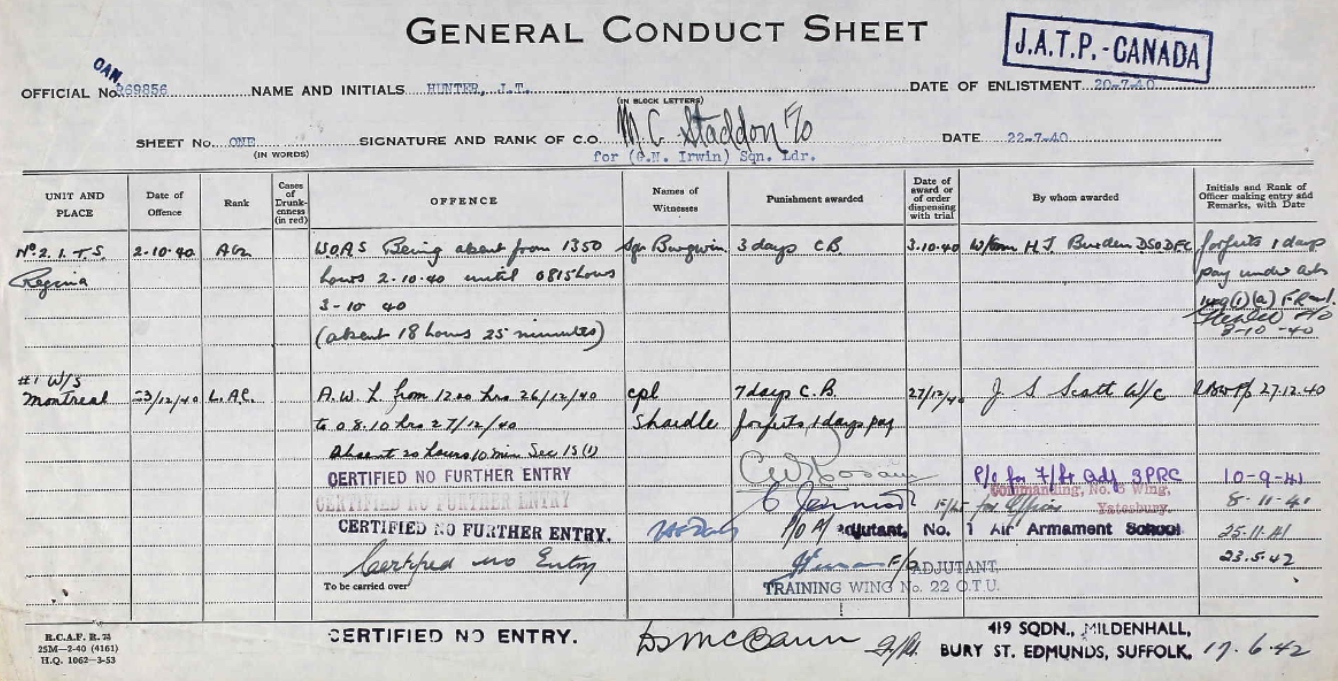 GENERAL CONDUCT SHEET
J.A.T.P.-CANADA
CAN
OFFICIAL No. R69856 NAME AND INITIALS HUNTER, J.T. DATE OF ENLISTMENT 20-7-40
(IN BLOCK LETTERS)
SHEET No. ONE SIGNATURE AND RANK OF C.O. M C Staddon F/O DATE 22-7-40
(IN WORDS) for (G.N. Irwin) Sqn. Ldr.
UNIT AND PLACE Date of Offence Rank Cases of Drunk-enness (in red) OFFENCE Names of Witnesses Punishment awarded Date of award or of order dispensing with trial By whom awarded Initials and Rank of Officer making entry and Remarks, with Date
No. 2. I. T. S. 2-10-40 AC2 WOAS Being absent from 1350 Sgt Burgwin 3 days C.B. 3-10-40 W/Com H J Burden DSO DFC forfeits 1 days
Regina hours 2-10-40 until 0815 hours pay under
3-10 40
(absent 18 hours 25 minutes) 3-10-40
#1 W/S
Montreal /12/40 L.A.C. A.W.L. from 1200 hrs 26/12/40 cpl 7 days C.B. 27/12/40 J S Scott W/C 27.12.40
to 08.10 hrs 27/12/40 Shardle forfeits 1 days pay
Absent 20 hours 10 min Sec 15 (1)
CERTIFIED NO FURTHER ENTRY P/O for F/Lt Adj 3PRC 10-9-41
CERTIFIED NO FURTHER ENTRY Commanding, No. Wing, Yatesbury. 8-11-41
CERTIFIED NO FURTHER ENTRY. P/O A/ adjutant, No. 1 Air Armament School 25-11-41
Certified no Entry F/O ADJUTANT, 23.5.42
To be carried over TRAINING WING No. 22 O.T.U.
R.C.A.F. R. 74
25M—2-40 (4161)
H.Q. 1062—3-53
CERTIFIED NO ENTRY. 419 SQDN., MILDENHALL,
BURY ST. EDMUNDS, SUFFOLK. 17.6.42